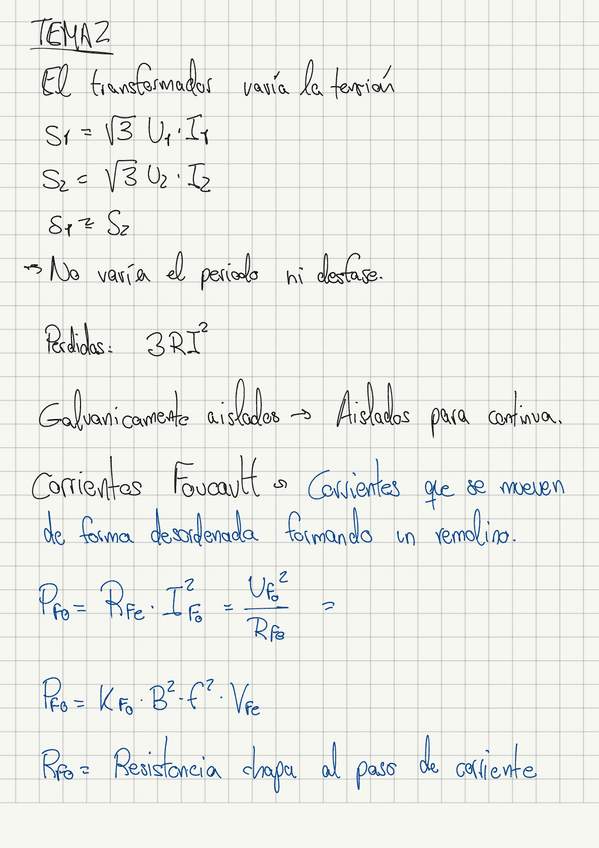 TEMA 2
El transformador varía la tensión
S1 = √3 U1 · I1
S2 = √3 U2 · I2
S1 ≈ S2
→ No varía el periodo ni desfase.
Perdidas: 3RI²
Galvanicamente aislados → Aislados para continua.
Corrientes Foucault → Corrientes que se mueven
de forma desordenada formando un remolino.
PFo = RFe · I²Fo = UFo² / RFo =
PFo = KFo · B² · f² · VFe
RFo = Resistencia chapa al paso de corriente